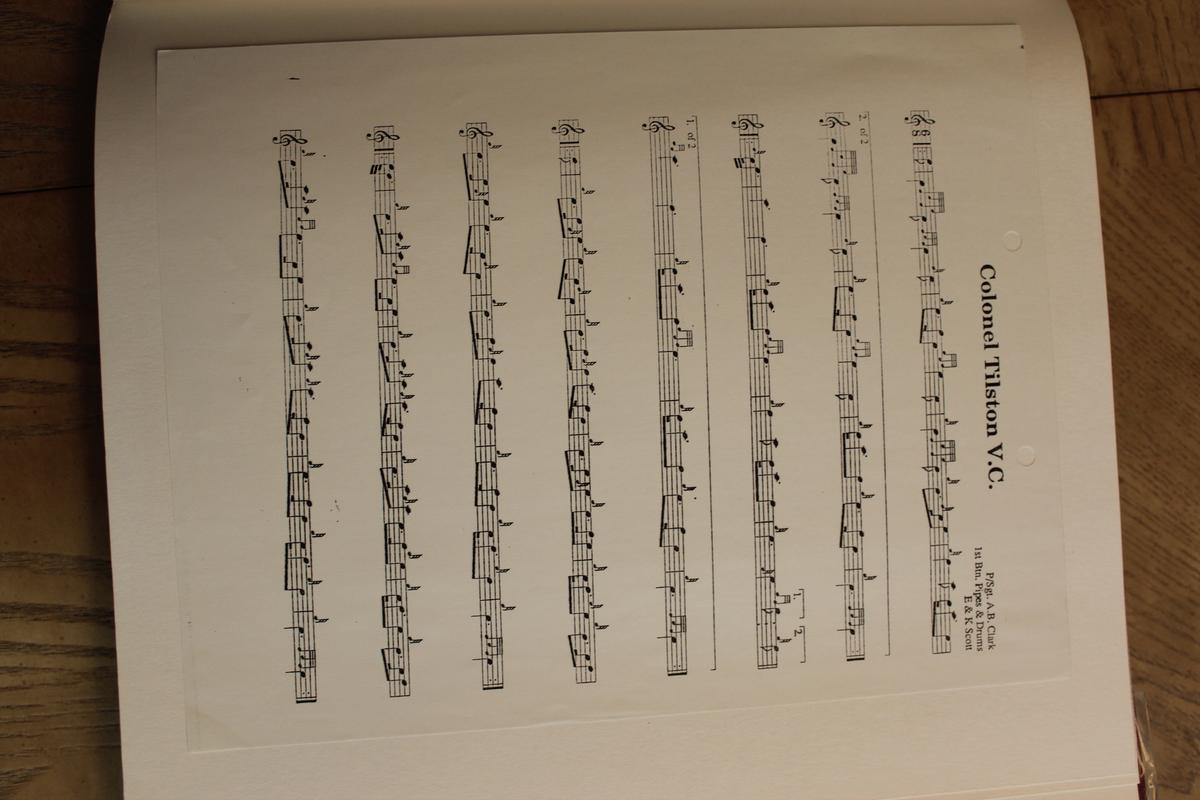 Colonel Tilston V.C.
P/Sgt. A.B. Clark
1st Btn. Pipes & Drums
E & K Scott
6
8
2. of 2
1.
2.
1. of 2